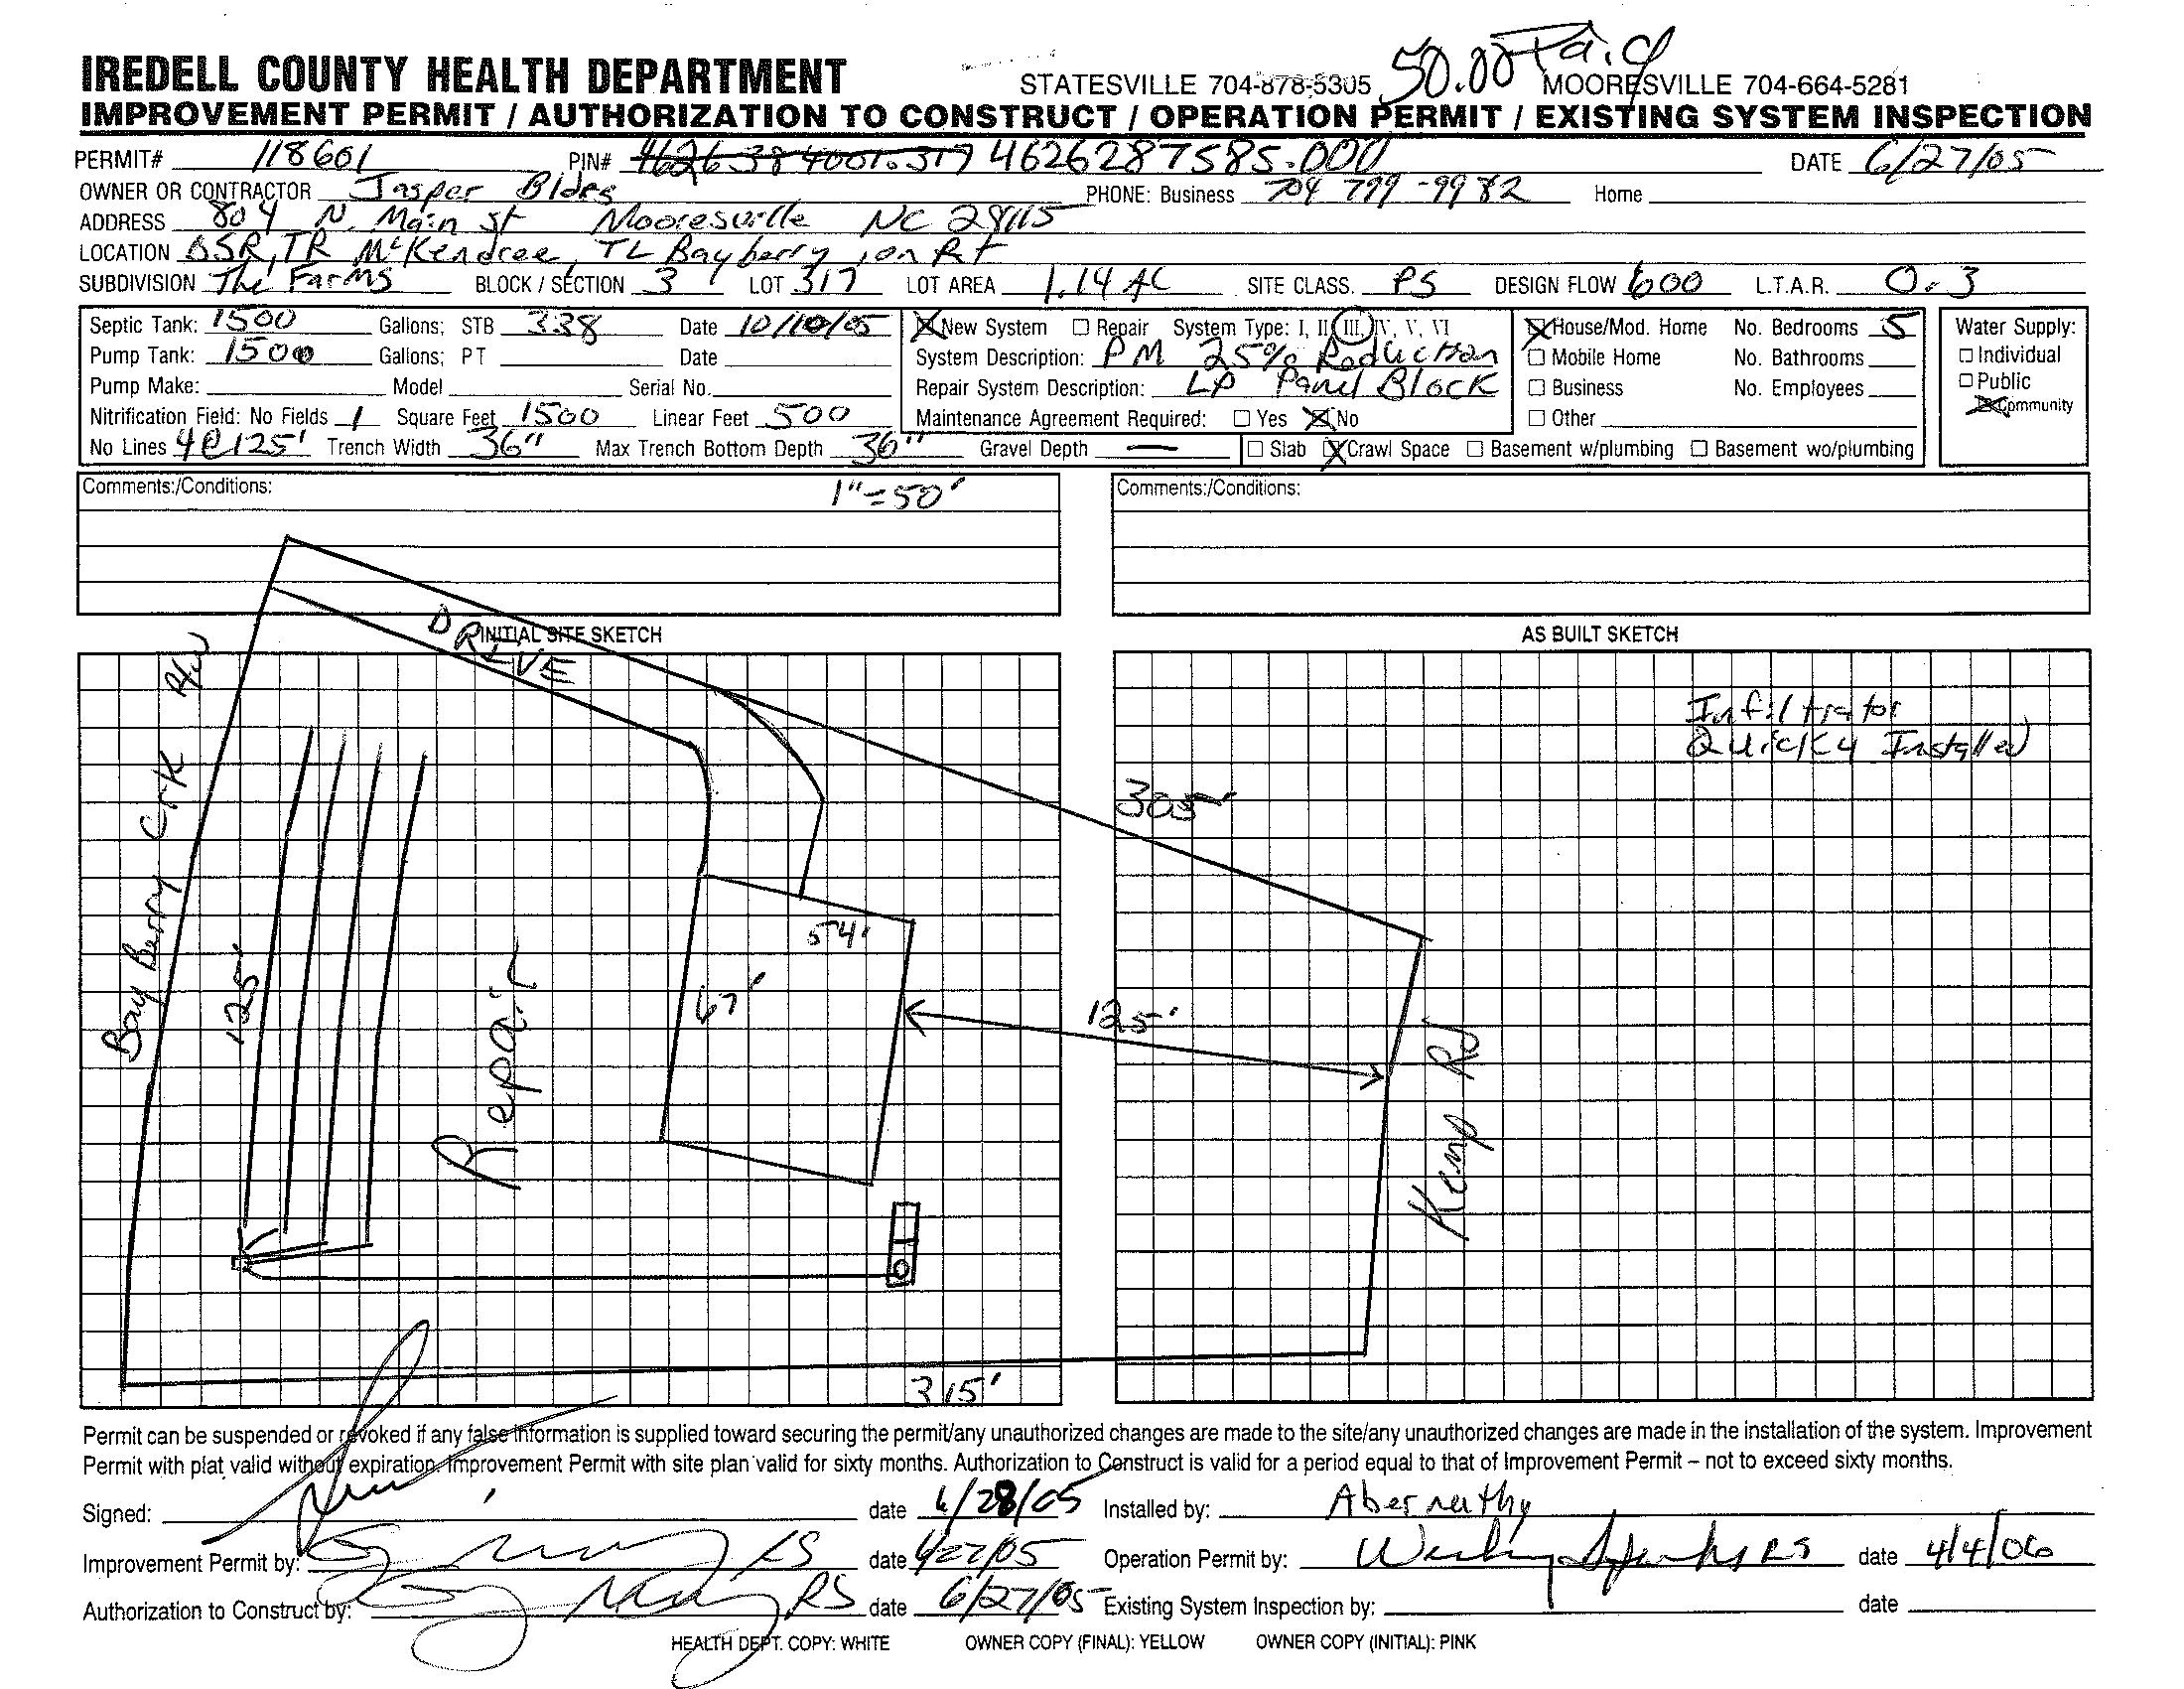 50.00 Paid
IREDELL COUNTY HEALTH DEPARTMENT STATESVILLE 704-878-5305 MOORESVILLE 704-664-5281
IMPROVEMENT PERMIT / AUTHORIZATION TO CONSTRUCT / OPERATION PERMIT / EXISTING SYSTEM INSPECTION
PERMIT# 118601 PIN# 4626287585.000 DATE 6/27/05
OWNER OR CONTRACTOR Jasper Bldrs PHONE: Business 704 799-9982 Home
ADDRESS 804 N. Main St Mooresville NC 28115
LOCATION BSR, TR McKendree, TL Bayberry, on Rt
SUBDIVISION The Farms BLOCK / SECTION 3 LOT 317 LOT AREA 1.14 AC SITE CLASS. PS DESIGN FLOW 600 L.T.A.R. 0.3
Septic Tank: 1500 Gallons; STB 338 Date 10/10/05 New System Repair System Type: I, II, III, IV, V, VI House/Mod. Home No. Bedrooms 5 Water Supply:
Pump Tank: 1500 Gallons; PT Date System Description: PM 25% Reduction Mobile Home No. Bathrooms Individual
Pump Make: Model Serial No. Repair System Description: LP Panel Block Business No. Employees Public
Nitrification Field: No Fields 1 Square Feet 1500 Linear Feet 500 Maintenance Agreement Required: Yes No Other Community
No Lines 4@125' Trench Width 36" Max Trench Bottom Depth 36" Gravel Depth — Slab Crawl Space Basement w/plumbing Basement wo/plumbing
Comments:/Conditions: 1"=50' Comments:/Conditions:
INITIAL SITE SKETCH AS BUILT SKETCH
DRIVE
Bay Berry Crk R/W
Infiltrator
Quick 4 Installed
305'
125'
54'
67'
Repair
125'
Kemp Rd
315'
Permit can be suspended or revoked if any false information is supplied toward securing the permit/any unauthorized changes are made to the site/any unauthorized changes are made in the installation of the system. Improvement
Permit with plat valid without expiration. Improvement Permit with site plan valid for sixty months. Authorization to Construct is valid for a period equal to that of Improvement Permit – not to exceed sixty months.
Signed: date 6/28/05 Installed by: Abernathy
Improvement Permit by: RS date 6/27/05 Operation Permit by: RS date 4/4/06
Authorization to Construct by: RS date 6/27/05 Existing System Inspection by: date
HEALTH DEPT. COPY: WHITE OWNER COPY (FINAL): YELLOW OWNER COPY (INITIAL): PINK